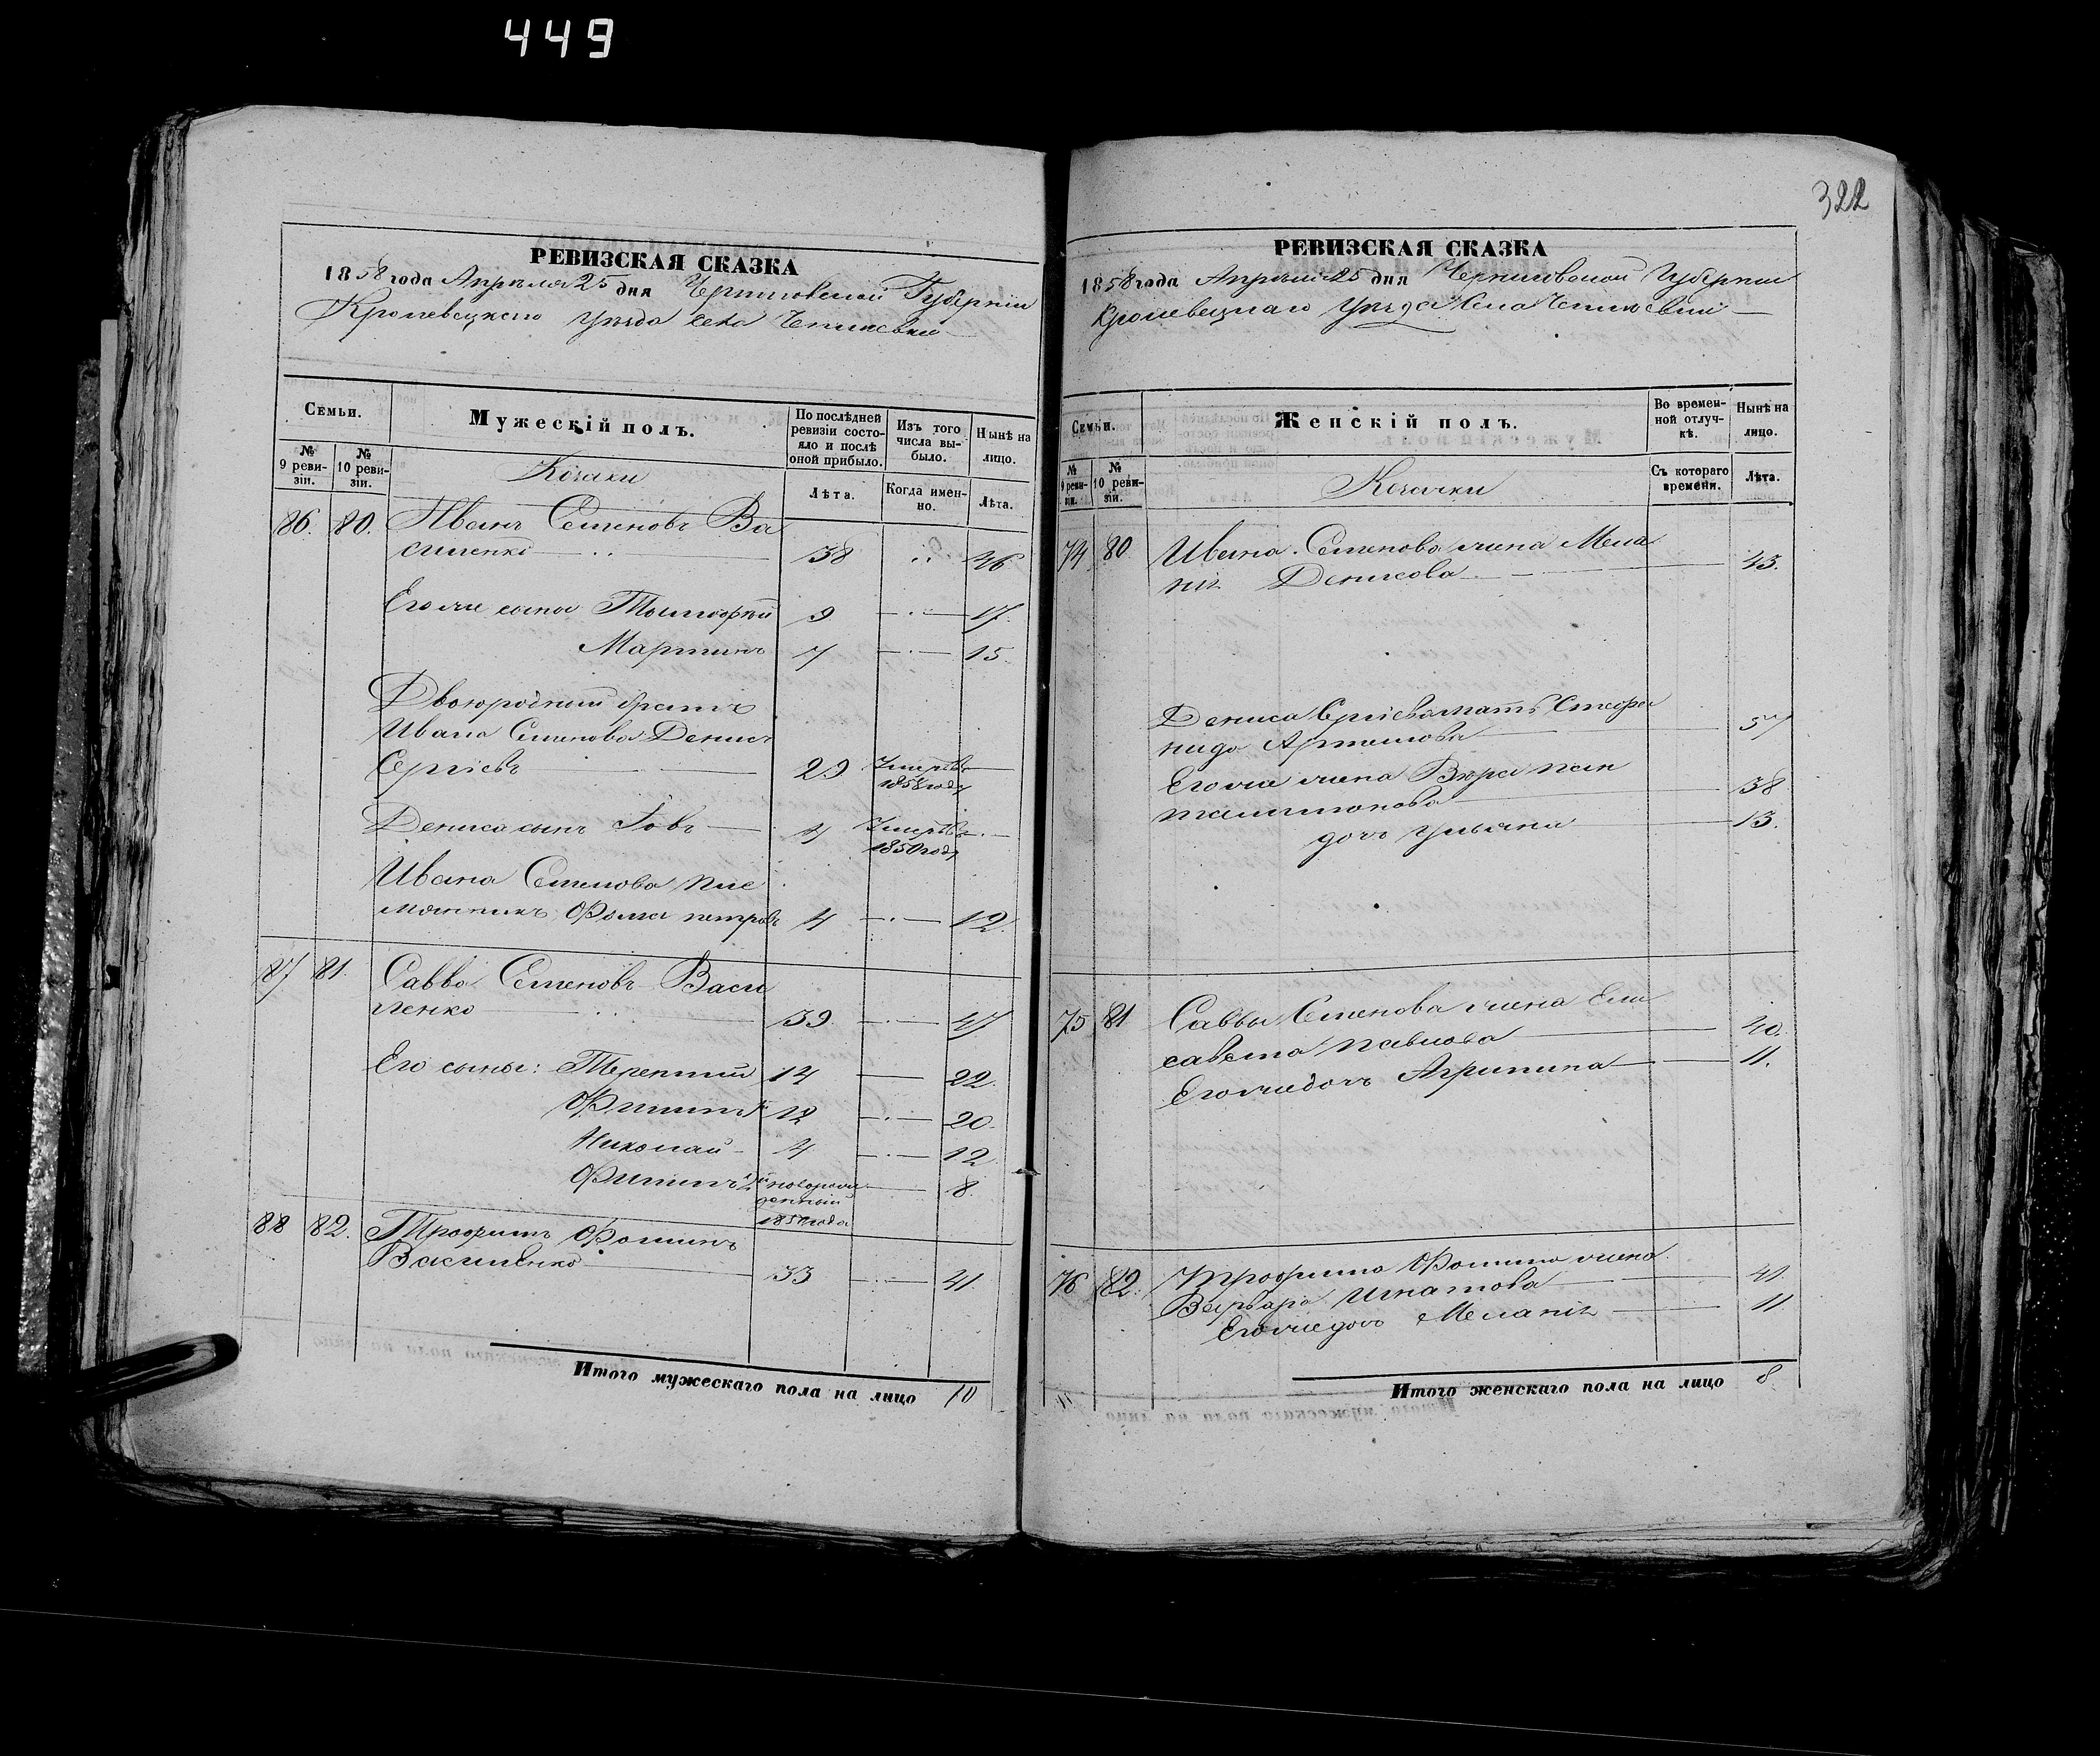 449
322
РЕВИЗСКАЯ СКАЗКА
1858 года Апрѣля 25 дня Черниговской Губерніи
Кролевецкаго уѣзда села
Семьи.
Мужескій полъ.
По послѣдней ревизіи состояло и послѣ оной прибыло.
Изъ того числа выбыло.
Нынѣ на лицо.
№ 9 ревизіи.
№ 10 ревизіи.
Козаки
Лѣта.
Когда именно.
Лѣта.
86. 80. Иванъ Семеновъ Ва
силенко 38 46
Его же сыны Тимофѣй 9 17.
Мартинъ 7 15.
Двоюродный братъ
Ивана Семенова Денисъ
Сергіевъ 29 Умеръ въ 1858 году
Дениса сынъ Іовъ 4 Умеръ въ 1850 году
Ивана Семенова пле
мянникъ Фома петровъ 4 12.
87 81. Савва Семеновъ Васи
ленко 39. 47
Его сыны: Терентий 14 22.
Филипъ 1й 12 20.
Николай 4 12
Филипъ 2й новорож
денный
1850 года 8.
88 82. Трофимъ Фоминъ
Василенко 33 41.
Итого мужескаго пола на лицо 10
РЕВИЗСКАЯ СКАЗКА
1858 года Апрѣля 25 дня Черниговской Губерніи
Кролевецкаго уѣзда села
Семьи.
Женскій полъ.
Во временной отлучкѣ.
Нынѣ на лицо.
№ 9 ревизіи.
№ 10 ревизіи.
Козачки
Съ котораго времени.
Лѣта.
74 80 Ивана Семенова жена Мела
нія Денисова 43.
Дениса Сергіева мать Стефа
нида Артемова 57
Его же жена Вера пан
талимонова 38
дочь Ульяна 13.
75 81 Саввы Семенова жена Ели
савета павлова 40.
Его же дочь Агрипина 11.
76 82. Трофима Фомина жена
Варвара Игнатова 41.
Его же дочь Меланія 11
Итого женскаго пола на лицо 8